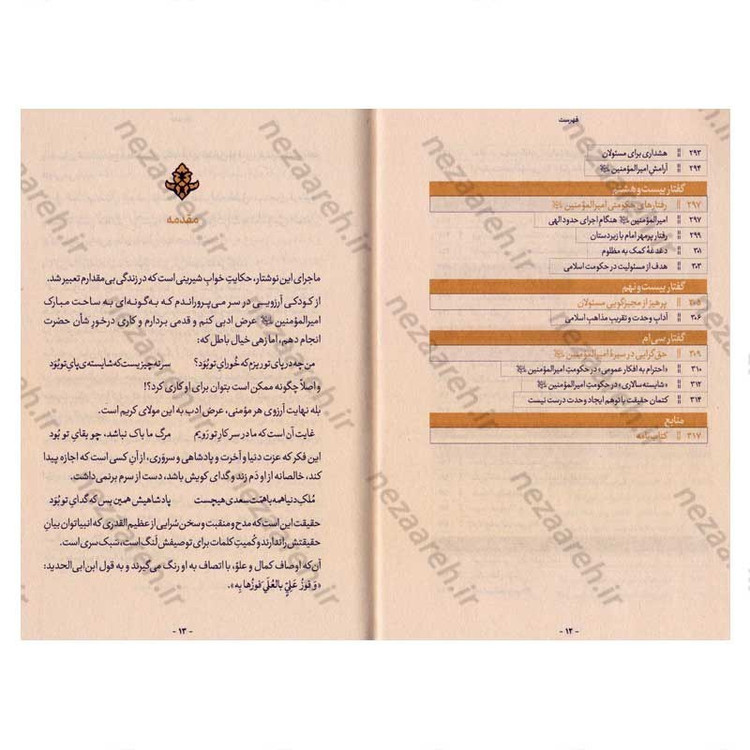 فهرست
۲۹۳ هشداری برای مسئولان
۲۹۴ آرامشِ امیرالمؤمنین ﷺ
گفتار بیست و هشتم
۲۹۷ رفتارهای حکومتی امیرالمؤمنین
۲۹۷ امیرالمؤمنین هنگام اجرای حدود الهی
۲۹۹ رفتار پرمهر امام با زیردستان
۳۰۱ دغدغهٔ کمک به مظلوم
۳۰۳ هدف از مسئولیت در حکومت اسلامی
گفتار بیست و نهم
۳۰۵ پرهیز از مجیزگویی مسئولان
۳۰۶ آداب وحدت و تقریب مذاهب اسلامی
گفتار سی‌اُم
۳۰۹ حق‌گرایی در سیرهٔ امیرالمؤمنین
۳۱۰ «احترام به افکار عمومی» در حکومتِ امیرالمؤمنین
۳۱۲ «شایسته سالاری» در حکومت امیرالمؤمنین
۳۱۴ کتمان حقیقت با توهم ایجاد وحدت درست نیست
منابع
۳۱۷ کتابنامه
- ۱۲ -
مقدمه
ماجرای این نوشتار، حکایتِ خوابِ شیرینی است که در زندگی بی‌مقدارم تعبیر شد.
از کودکی آرزویی در سر می‌پروراندم که به گونه‌ای به ساحت مبارک
امیرالمؤمنین عرض ادبی کنم و قدمی بردارم و کاری درخورِ شأن حضرت
انجام دهم، اما زهی خیال باطل که:
من چه در پای تو ریزم که خُورایِ تو بُوَد؟ سر نه چیزیست که شایسته‌ی پای تو بُوَد
و اصلاً چگونه ممکن است بتوان برای او کاری کرد؟!
بله نهایت آرزوی هر مؤمنی، عرض ادب به این مولای کریم است.
غایت آن است که ما در سرِ کارِ تو رَویم مرگ ما باک نباشد، چو بقایِ تو بُود
این فکر که عزت دنیا و آخرت و پادشاهی و سروَری، از آنِ کسی است که اجازه پیدا
کند، خالصانه از او دَم زند و گدای کویش باشد، دست از سرم برنمی‌داشت.
مُلکِ دنیا همه با همّت سعدی هیچست پادشاهیش همین بس که گدایِ تو بُوَد
حقیقت این است که مدح و منقبت و سخن سُرایی از عظیم القدری که انبیا توانِ بیانِ
حقیقتش را ندارند و کُمیتِ کلمات برای توصیفش لَنگ است، سَبک سری است.
آن‌که اوصاف کمال و علوّ، با اتصاف به او رنگ می‌گیرند و به قول ابن ابی‌الحدید:
«وَ فَوزُ عَلِیٍّ بالعُلَی فَوزُها بِه».
- ۱۳ -
nezaareh.ir
nezaareh.ir
nezaareh.ir
nezaareh.ir
nezaareh.ir
nezaareh.ir
nezaareh.ir